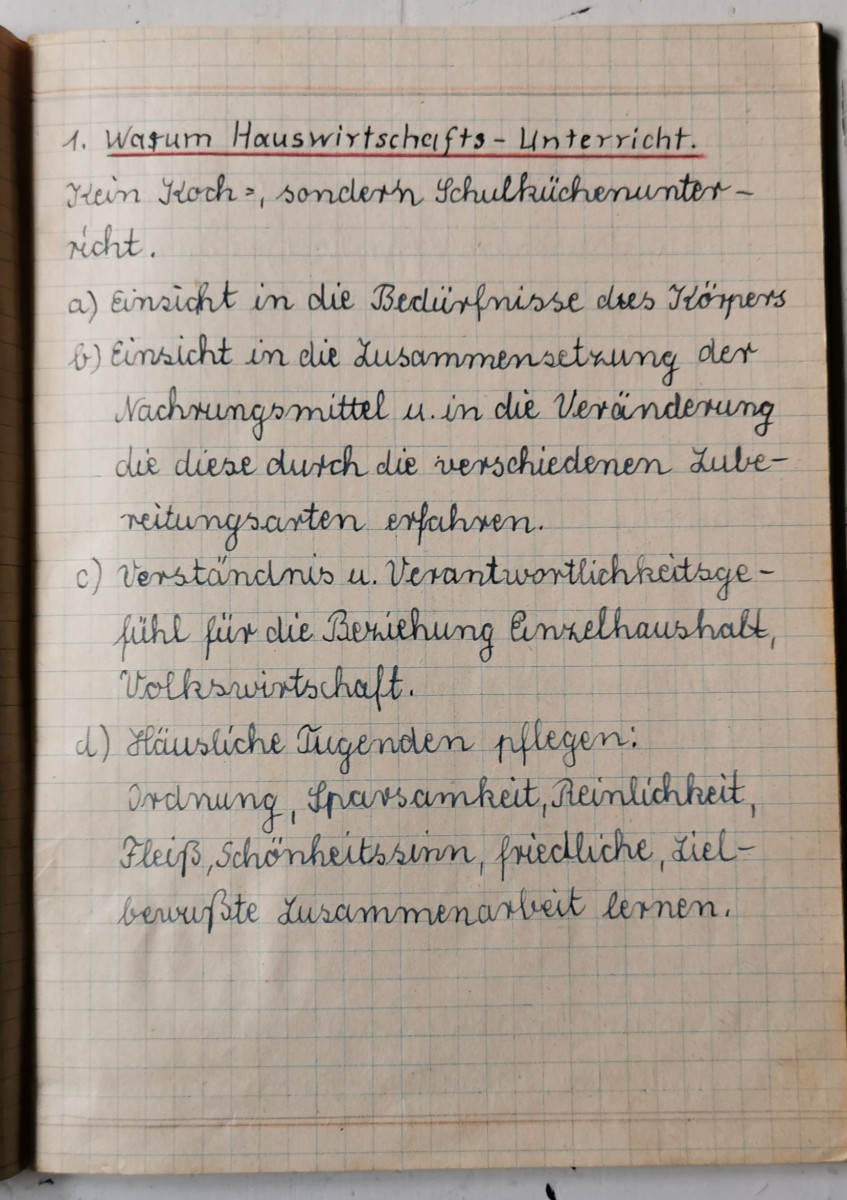 1. Warum Hauswirtschafts-Unterricht.
Kein Koch=, sondern Schulküchenunter-
richt.
a) Einsicht in die Bedürfnisse des Körpers
b) Einsicht in die Zusammensetzung der
Nachrungsmittel u. in die Veränderung
die diese durch die verschiedenen Zube-
reitungsarten erfahren.
c) Verständnis u. Verantwortlichkeitsge-
fühl für die Beziehung Einzelhaushalt,
Volkswirtschaft.
d) Häusliche Tugenden pflegen:
Ordnung, Sparsamkeit, Reinlichkeit,
Fleiß, Schönheitssinn, friedliche, Ziel-
bewußte Zusammenarbeit lernen.